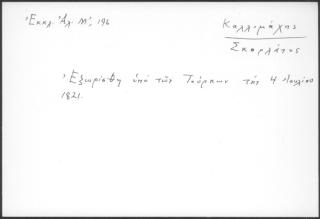 Ἐκκλ. Ἀλ. Μ', 196
Καλλιμάχης
Σκαρλάτος
Ἐξωρίσθη ὑπὸ τῶν Τούρκων τῆς 4 Ἰουλίου
1821.